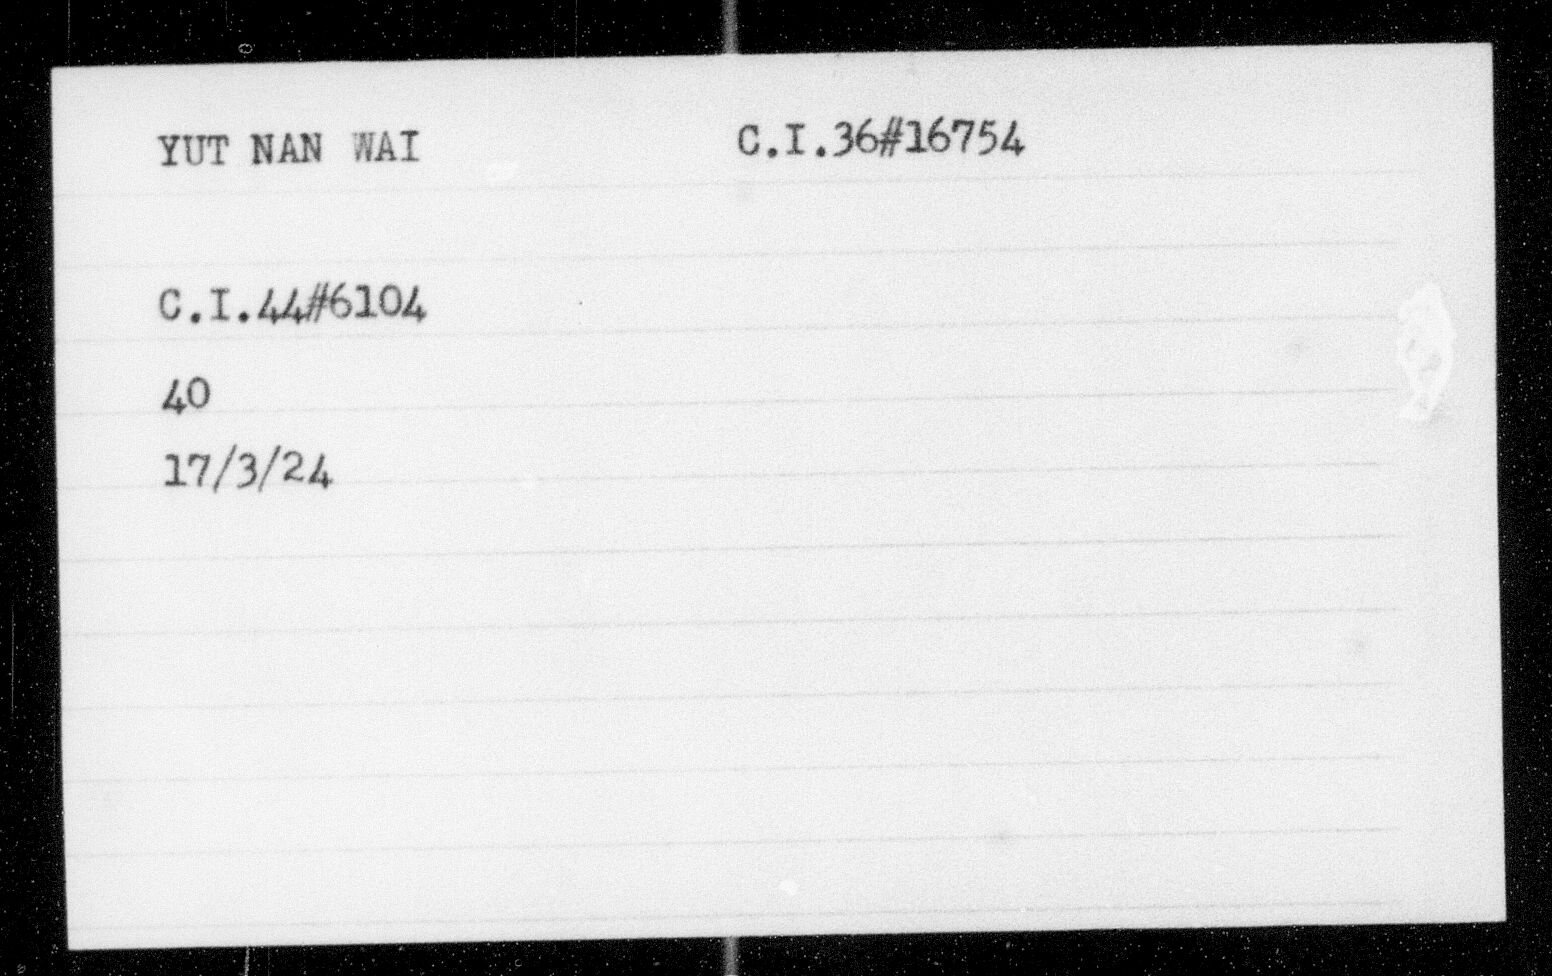 YUT NAN WAI C.I.36#16754
C.I.44#6104
40
17/3/24